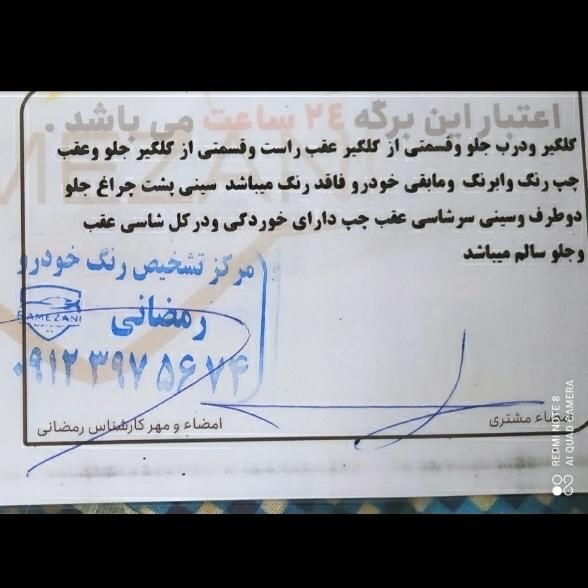 اعتبار این برگه ۲۴ ساعت می باشد .
کلگیر ودرب جلو وقسمتی از کلگیر عقب راست وقسمتی از کلگیر جلو وعقب
چپ رنگ وابرنگ ومابقی خودرو فاقد رنگ میباشد سینی پشت چراغ جلو
دوطرف وسینی سرشاسی عقب چپ دارای خوردگی ودرکل شاسی عقب
وجلو سالم میباشد
مرکز تشخیص رنگ خودرو
رمضانی
RAMEZANI
۰۹۱۲ ۳۹۷ ۵۶ ۷۴
امضاء مشتری
امضاء و مهر کارشناس رمضانی
REDMI NOTE 8
AI QUAD CAMERA